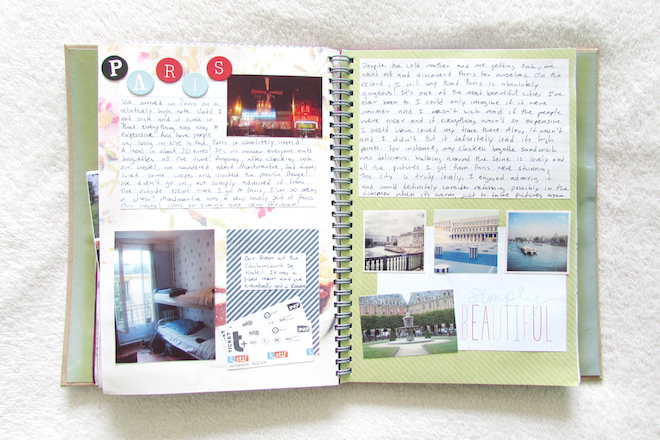 PARIS
We arrived in Paris on a
relatively high note. Until I
got sick and it sunk in
that everything was way too
expensive. And here people
say living in NYC is bad. Paris is absolutely
A meal is about 20 euros. It's no wonder everyone eats
baguettes all the time! Anyway, after checking into
our hostel, we wandered about Montmartre,
some crepes and visited the Moulin Rouge!
We didn't go in, but simply admired it from
the outside. Next time I go to Paris, I'm so seeing
a show! Montmartre was a very lovely part of Paris.
Our hostel was so and very Parisian!
Our Room at the
Caulaincourt Sq.
Hostel. It was a
3-bed room and we
eventually got a Roomie
TICKET
t+
RATP
STIF
Despite the cold weather and me getting sick, we
went out and discovered Paris for ourselves. On the
record, I will say that Paris is absolutely
gorgeous. It's one of the most beautiful cities I've
ever been to. I could only imagine if it were
summer and I wasn't sick and if the people
were nicer and if everything wasn't so expensive
I would have loved my time there. Alas, it wasn't
and I didn't. But it definitely had its high
points. For instance, my chicken baguette sandwich
was delicious. Walking around the Seine is lovely and
all the pictures I got from Paris were stunning.
The city is truly lovely. I enjoyed admiring it
and would definitely consider returning, possibly in the
summer when it's warm, just to take pictures again
Simply
BEAUTIFUL